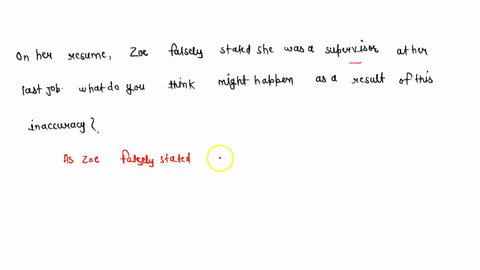 On her resume, Zoe falsely stated she was a supervisor at her
last job. what do you think might happen as a result of this
inaccuracy?
As Zoe falsely stated